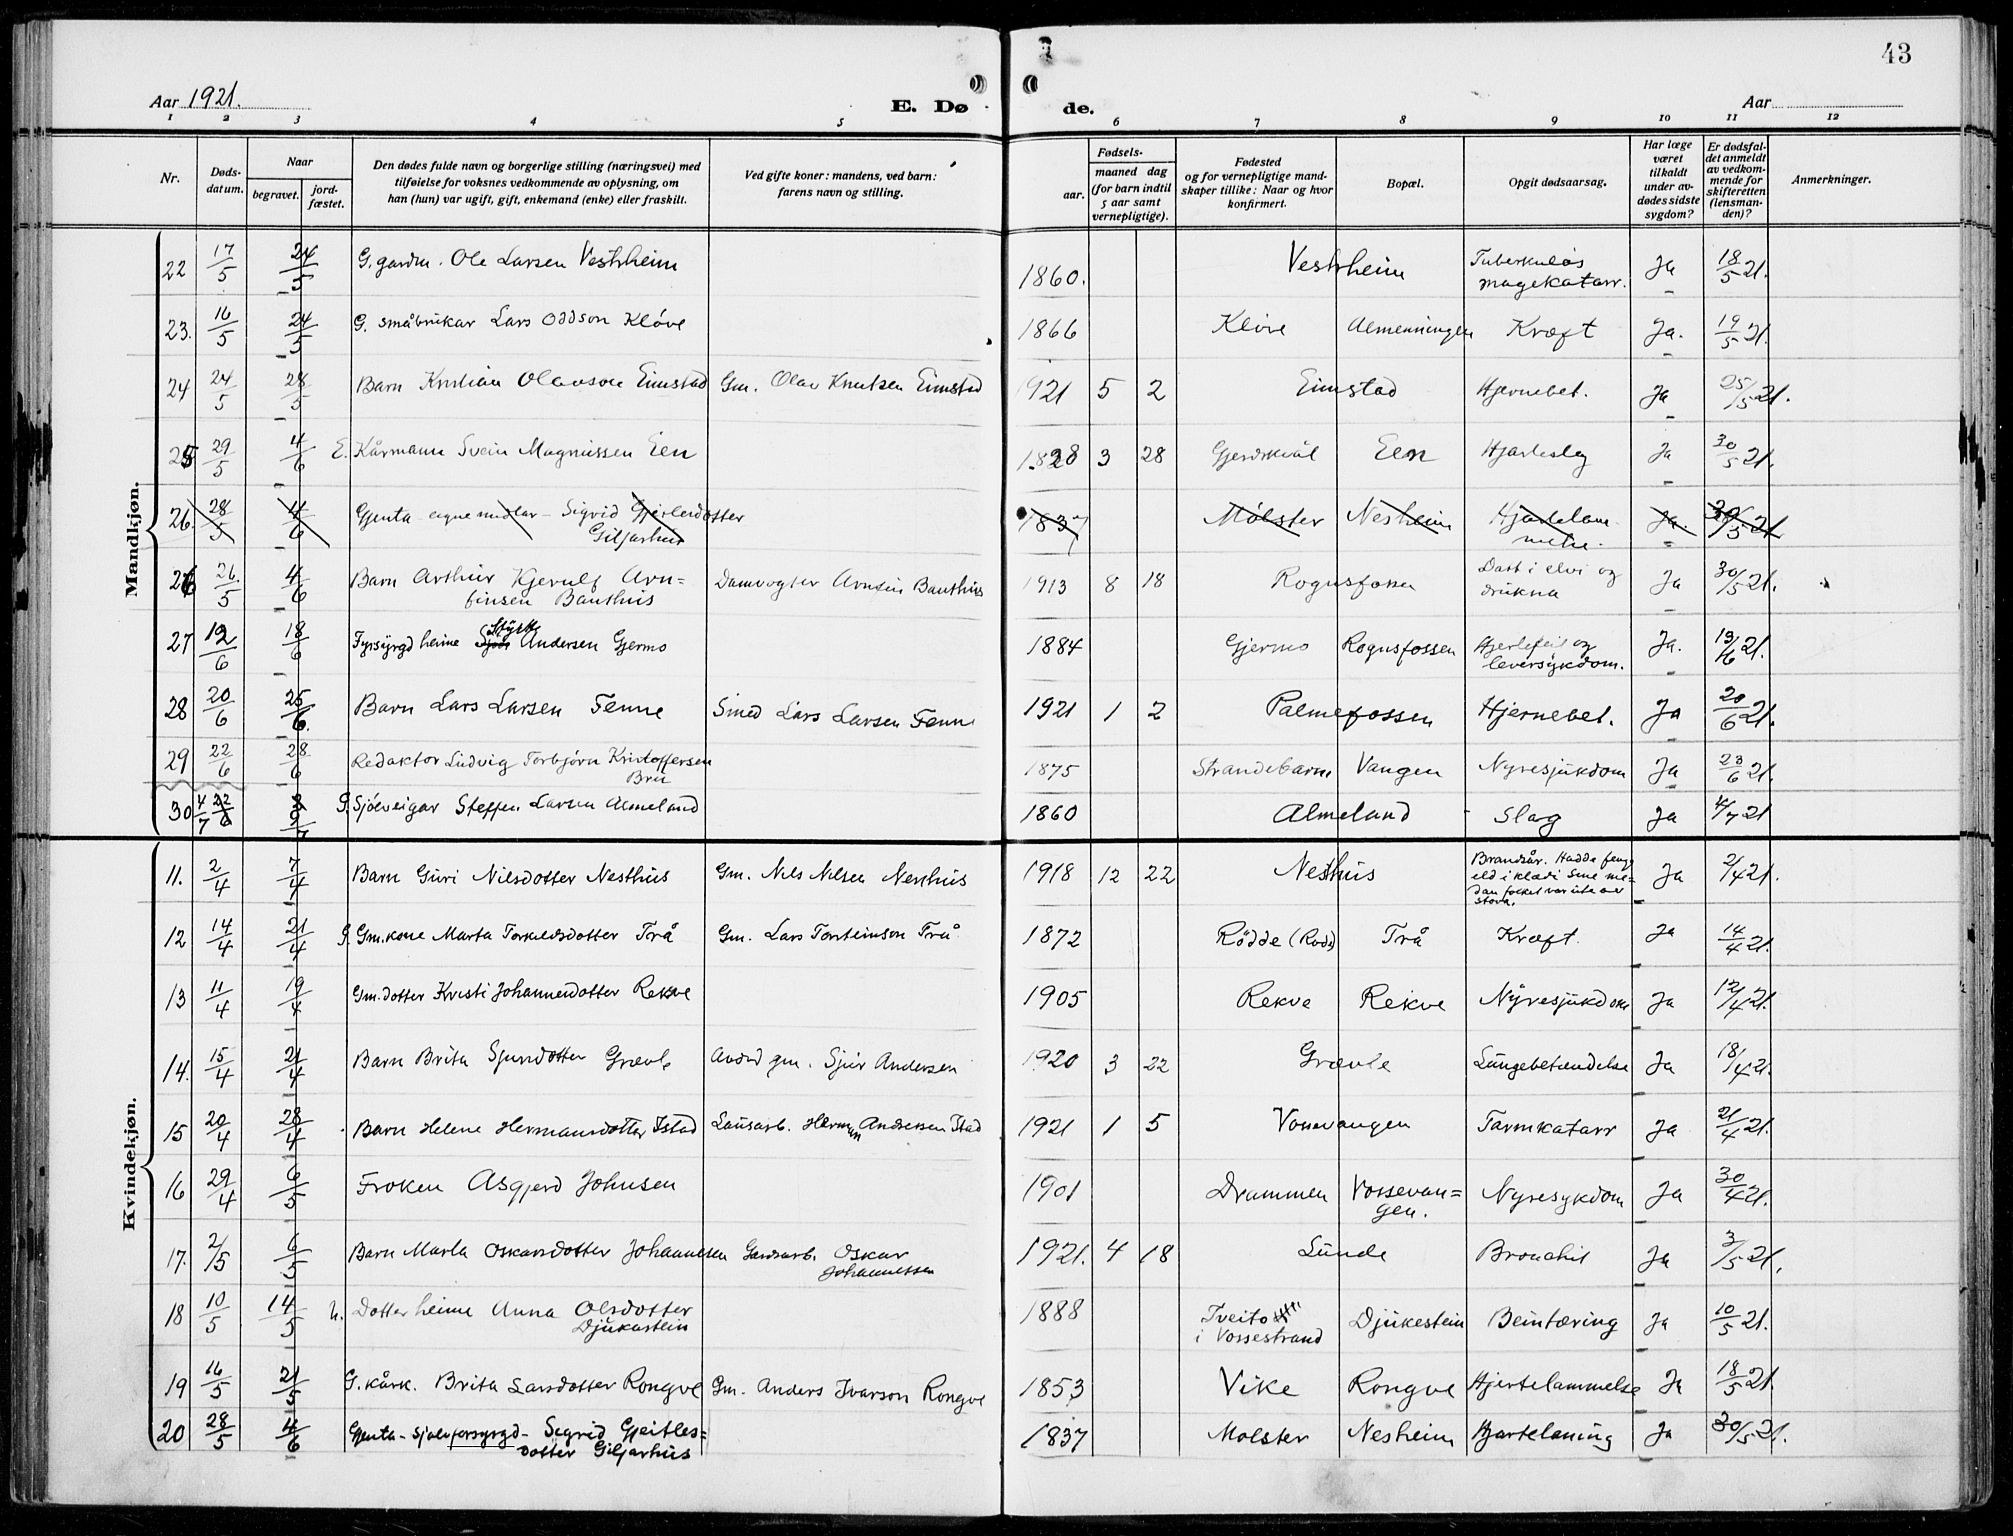 43
Aar 1921.
E. Dø de.
Aar
1 2 3 4 5 6 7 8 9 10 11 12
Nr.
Døds-
datum.
Naar
begravet.
jord-
fæstet.
Den dødes fulde navn og borgerlige stilling (næringsvei) med
tilføielse for voksnes vedkommende av oplysning, om
han (hun) var ugift, gift, enkemand (enke) eller fraskilt.
Ved gifte koner: mandens, ved barn:
farens navn og stilling.
Fødsels-
aar.
maaned dag
(for barn indtil
5 aar samt
vernepligtige).
Fødested
og for vernepligtige mand-
skaper tillike: Naar og hvor
konfirmert.
Bopæl.
Opgit dødsaarsag.
Har læge
været
tilkaldt
under av-
dødes sidste
sygdom?
Er dødsfal-
det anmeldt
av vedkom-
mende for
skifteretten
(lensman-
den)?
Anmerkninger.
Mandkjøn.
22 17/5 24/5 G. gardm. Ole Larsen Vestrheim 1860. Vestrheim Tuberkuløs
magekatarr. Ja 18/5 21.
23. 16/5 24/5 G. småbrukar Lars Oddson Kløve 1866 Kløve Almenningen Kræft Ja. 19/5 21.
24 24/5 28/5 Barn Kristian Olavson Eimstad Gm. Olav Knutsen Eimstad 1921 5 2 Eimstad Hjernebet. Ja 25/5 21.
25 29/5 4/6 E. Kårmann Svein Magnussen Een 1828 3 28 Gjerdskvål Een Hjarteslg Ja 30/5 21.
26. 28/5 4/6 Gjenta - egne midlar - Sigrid Gjeirlesdotter
Giljarhus 1837 Mølster Nesheim Hjartelam-
melse. Ja. 30/5 21.
26 26/5 4/6 Barn Arthur Kjerulf Arn=
finsen Bauthus Damvogter Arnfin Bauthus 1913 8 18 Rognsfossen Datt i elvi og
drukna Ja 30/5 21.
27 12/6 18/6 Fyrsyrgd heime Styrk Andersen Gjermo 1884 Gjermo Rognsfossen Hjertefeil og
leversykdom. Ja. 13/6 21.
28 20/6 25/6. Barn Lars Larsen Fenne Smed Lars Larsen Fenne 1921 1 2 Palmefossen Hjernebet. Ja 20/6 21.
29 22/6 28/6 Redaktør Ludvig Torbjørn Kristoffersen
Bru 1875 Strandebarm Vangen Nyresjukdom Ja 23/6 21.
30 4/7 9/7 G. Sjølveigar Steffen Larsen Almeland 1860 Almeland Slag Ja 4/7 21
Kvindekjøn.
11. 2/4 7/4 Barn Guri Nilsdotter Nesthus Gm. Nils Nilsen Nesthus 1918 12 22 Nesthus Brandsår. Hadde fenge
eld i klædi sine me=
dan folket var ute av
stova. Ja 2/4 21.
12 14/4 21/4 G. Gm.kone Marta Torkelsdotter Trå Gm. Lars Torsteinson Trå 1872 Rødde (Rodd) Trå Kræft. Ja 14/4 21.
13 11/4 19/4 Gm.dotter Kristi Johannesdotter Rekve 1905 Rekve Rekve Nyresjukdom Ja 12/4 21.
14. 15/4 21/4 Barn Brita Sjursdotter Grævle Avdød gm. Sjur Andersen 1920 3 22 Grævle Lungebetændelse Ja 18/4 21.
15 20/4 28/4 Barn Helene Hermansdotter Istad Lausarb. Herman Andersen Istad 1921 1 5 Vossevangen Tarmkatarr Ja 21/4 21.
16 29/4 6/5 Frøken Asgjerd Johnsen 1901 Drammen Vossevan=
gen. Nyresykdom Ja 30/4 21.
17. 2/5 6/5 Barn Marta Oskarsdotter Johannesen Gardsarb. Oskar
Johannessen 1921. 4 18 Lunde Bronchit Ja 3/5 21.
18 10/5 14/5 U. Dotter heime Anna Olsdotter
Djukastein 1888 Tveito
i Vossestrand Djukestein Beintæring Ja 10/5 21.
19 16/5 21/5 G. kårk. Brita Larsdotter Rongve Gm. Anders Ivarson Rongve 1853 Vike Rongve Hjertelammelse Ja 18/5 21.
20 28/5 4/6 Gjenta - sjølvforsyrgd - Sigrid Gjeitles=
dotter Giljarhus 1837 Mølster Nesheim Hjartelaming Ja 30/5 21.